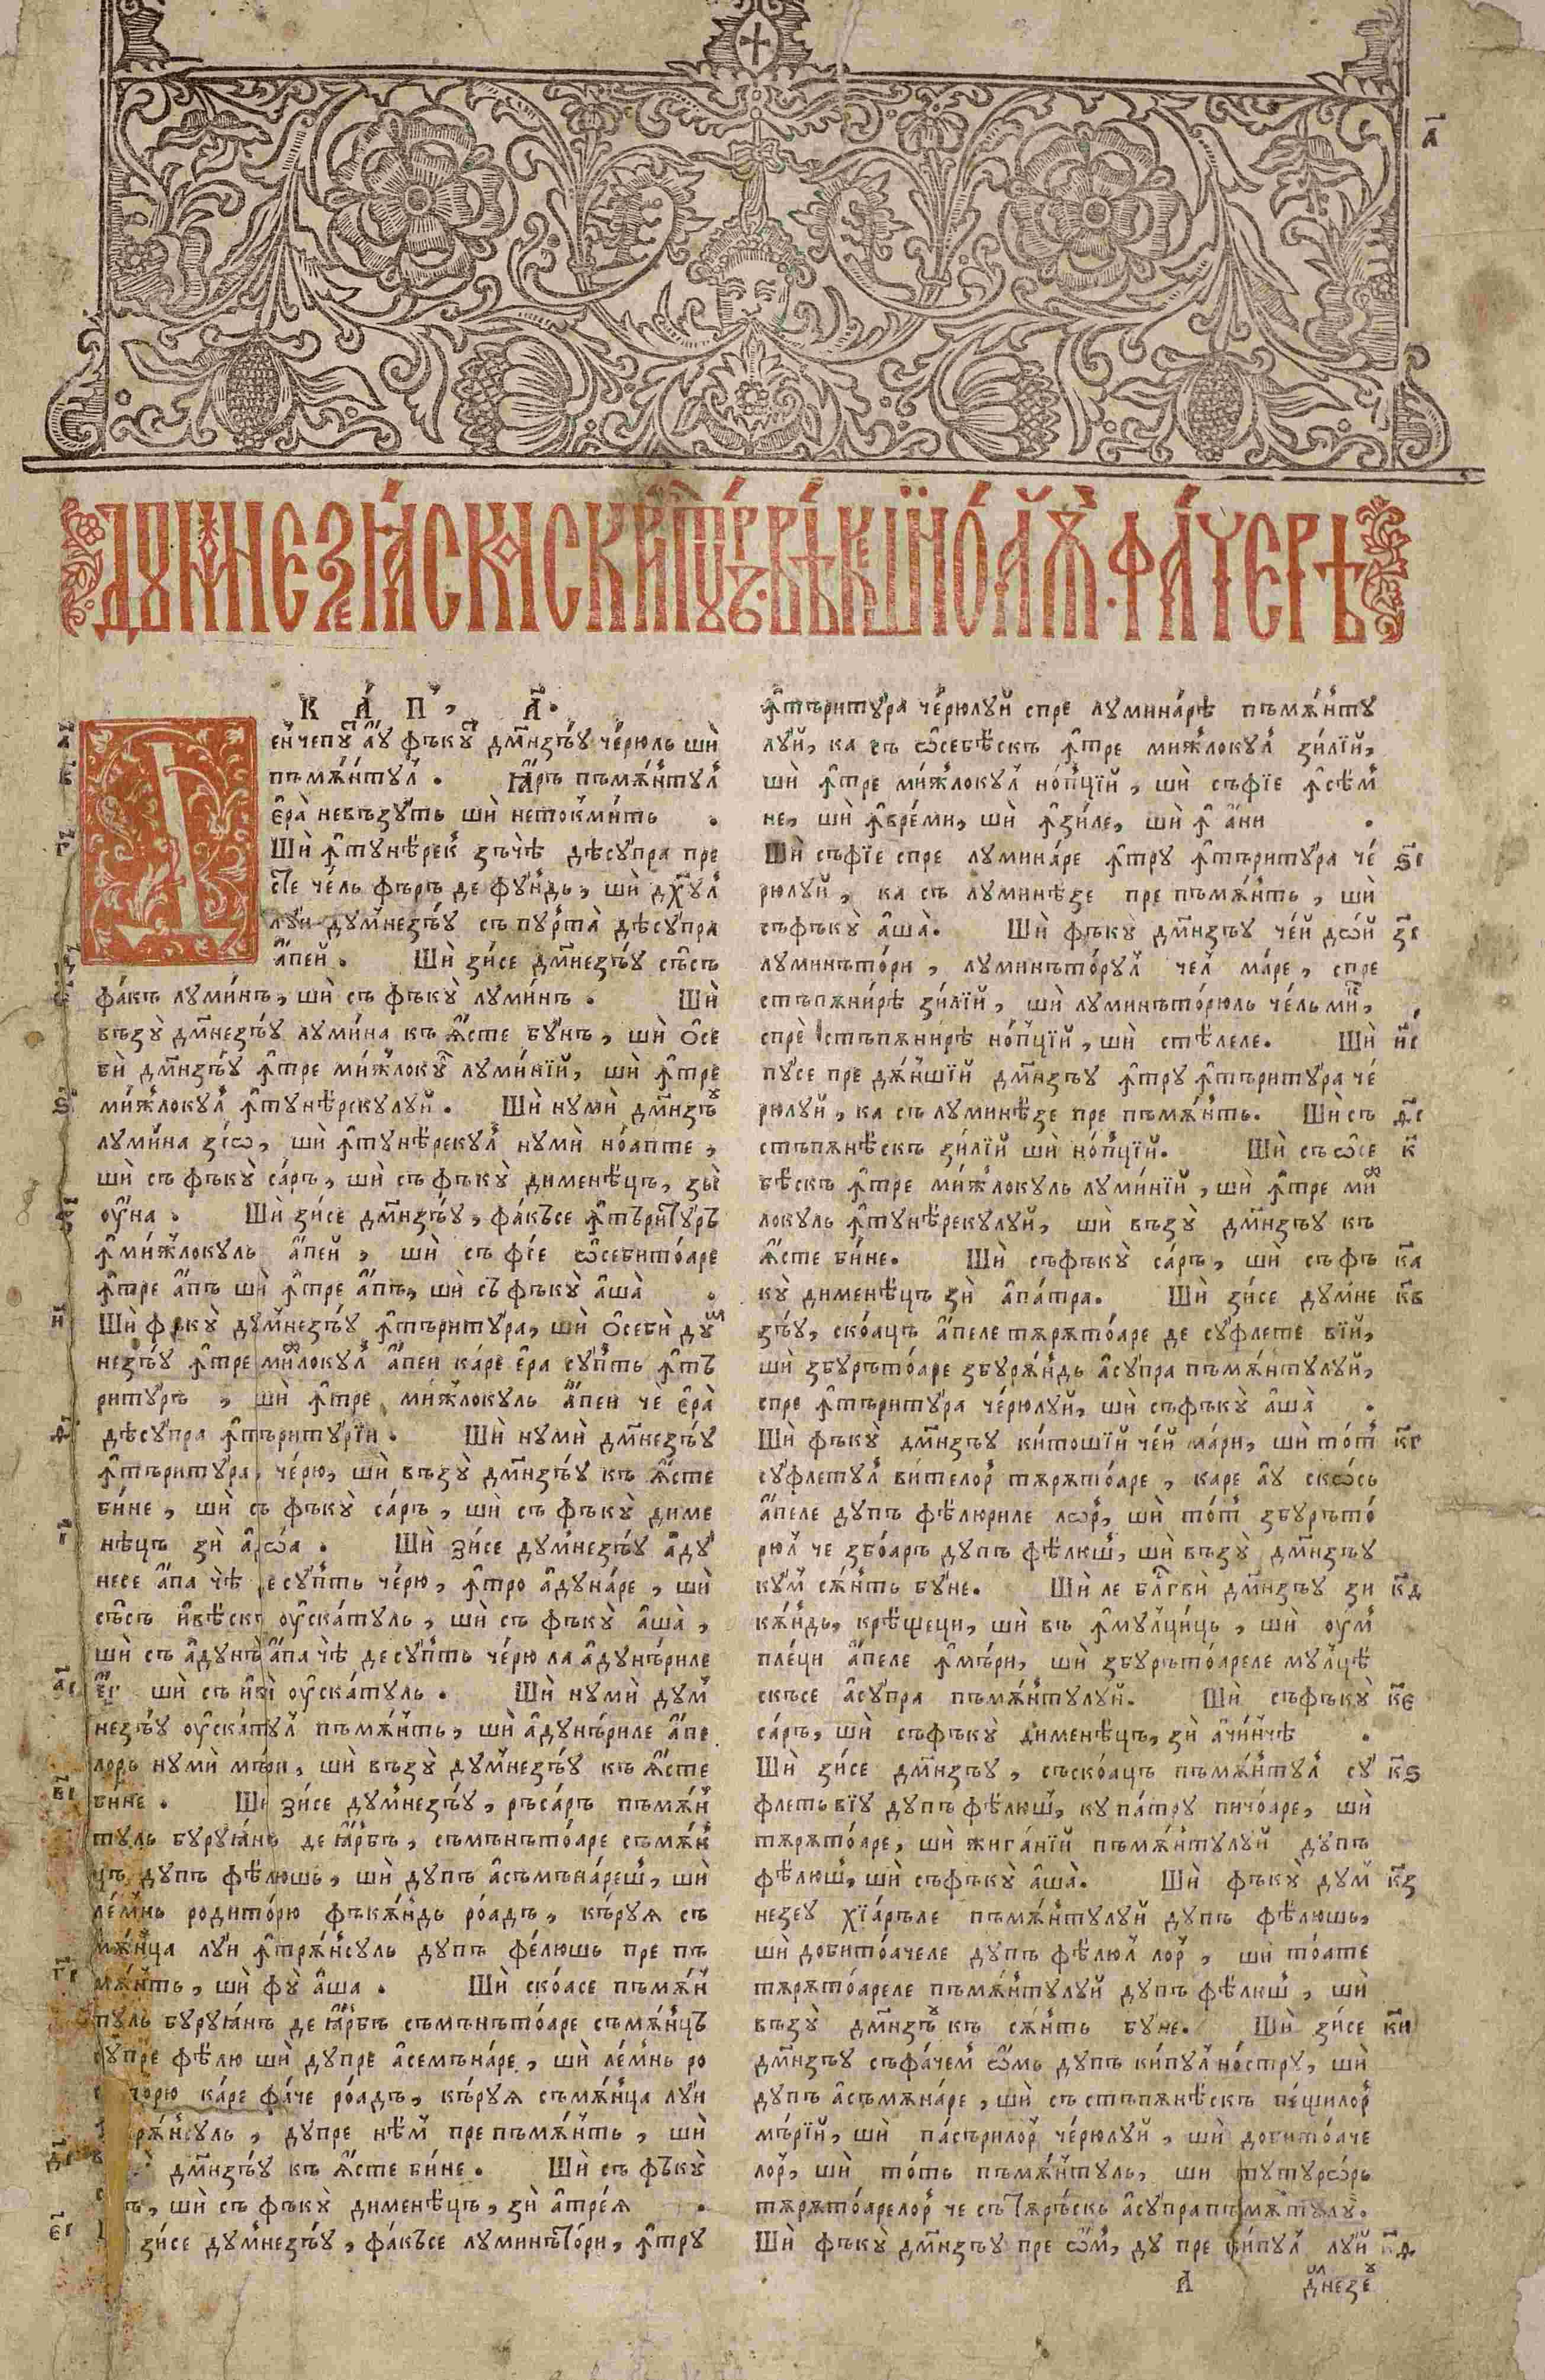 а҃
Дꙋмнезѣꙗска Скриптꙋръ въке шй Ноаѫ. Фачерѣ
Ка́п, а҃.
а҃ енчепꙋ́т а̂ꙋ фъкꙋ́т дм҃незъ́ꙋ че́рюль шѝ
в҃ пъмѫ́нтꙋл. Ꙗ̂ръ пъмѫ́нтꙋл
є̂ра̀ невъзꙋ́ть шѝ нетокми́ть .
г҃ Шѝ ꙟ̂тꙋнѣ́рек зъчѣ̀ дѣсꙋ́пра пре
сте че́ль фъръ де фꙋ́ндь, шѝ дх҃ꙋл
лꙋи дꙋмнезъ́ꙋ съ пꙋрта̀ дѣсꙋ́пра
а̂́пей. Шѝ зи́се дм҃незъ́ꙋ съ̂съ
фа́къ лꙋми́нъ, шѝ съ фъкꙋ̀ лꙋми́нъ. Шѝ
възꙋ̀ дм҃незъ́ꙋ лꙋми́на къ ѩ̂сте бꙋ́нъ, шѝ о̂се
бѝ дм҃нзъ́ꙋ ꙟ̂тре ми́жлокꙋл лꙋми́нїй, шѝ ꙟ̂тре
ѕ҃ ми́жлокꙋл ꙟ̂тꙋнѣ́рекꙋлꙋй. Шѝ нꙋмѝ дм҃нзъꙋ
лꙋми́на зі́ѡ, шѝ ꙟ̂тꙋнѣ́рекꙋл нꙋмѝ но́апте,
шѝ съ фъкꙋ̀ са́ръ, шѝ съ фъкꙋ̀ дименѣ́цъ, зы̀
ᲂу̂на. Шѝ зи́се дм҃нзъ́ꙋ, фа́късе ꙟ̂търитꙋръ
ꙟ̂ми́жлокꙋль а̂́пей, шѝ съ фі́е ѡ̂себито́аре
ꙟ̂тре а̂́пъ шѝ ꙟ̂тре а̂́пъ, шѝ съ фъкꙋ̀ а̂ша̀ .
и҃ Шѝ фъкꙋ̀ дꙋмнезъ́ꙋ ꙟ̂търитꙋ́ра, шѝ о̂себѝ дꙋм
незъ́ꙋ ꙟ̂тре мижлокꙋл а̂́пей ка́ре є̂ра сꙋ́пть ꙟ̂тъ
ритꙋръ, шѝ ꙟ̂тре ми́жлокꙋль а̂́пей чѐ є̂ра̀
дѣсꙋ́пра ꙟ̂търитꙋ́рїи. Шѝ нꙋмѝ дм҃незъ́ꙋ
ꙟ̂търитꙋ́ра, че́рю, шѝ възꙋ̀ дм҃нзъ́ꙋ къ ѩ̂сте
би́не, шѝ съ фъкꙋ̀ са́ръ, шѝ съ фъкꙋ̀ диме
нѣ́цъ зѝ а̂ дѡ́а. Шѝ зи́се дꙋмнезъ́ꙋ а̂дꙋ́
несе а̂́па чѣ̀ де сꙋ́пть че́рю, ꙟ̂тро а̂дꙋна́ре, шѝ
съ̂съ и̂вѣ́скъ ᲂу̂ска́тꙋль, шѝ съ фъкꙋ̀ а̂ша̀,
шѝ съ а̂дꙋнъ̀ а̂́па чѣ̀ де сꙋ́пть че́рю ла а̂дꙋнъ́риле
а҃і є̂и шѝ съ и̂вѝ ᲂу̂ска́тꙋль. Шѝ нꙋмѝ дꙋм
незъ́ꙋ ᲂу̂ска́тꙋл пъмѫ́нть, шѝ а̂дꙋнъ́риле а̂́пе
лорь нꙋмѝ мъ́ри, шѝ възꙋ̀ дꙋмнезъ́ꙋ къ ѩ̂сте
в҃і би́не. Шѝ зи́се дꙋмнезъ́ꙋ, ръса́ръ пъмѫ́н
тꙋль бꙋрꙋꙗ́нъ де ꙗ̂рбъ, съмънъто́аре съмѫ́н
цъ дꙋпъ фѣ́люшь, шѝ дꙋпъ а̂съмъна́реш, шѝ
ле́мнь родито́рю фъкѫ́ндь ро́адъ, къ́рꙋѧ съ
мѫ́нца лꙋи ꙟ̂трѫ́нсꙋль дꙋпъ фе́люшь пре пъ
г҃і мѫ́нть, шѝ фꙋ̀ а̂ша. Шѝ ско́асе пъмѫ́н
тꙋль бꙋрꙋꙗ́нъ де ꙗ̂рбъ съмънъто́аре съмѫ́нцъ
дꙋпре фѣ́лю шѝ дꙋпре а̂семъна́ре, шѝ ле́мнь ро
ка́ре фа́че ро́адъ, къ́рꙋѧ съмѫ́нца лꙋи
дꙋпре нѣ́м пре пъмѫ́нть, шѝ
д҃і дм҃нзъ́ꙋ къ ѩ̂сте би́не. Шѝ съ фъкꙋ̀
шѝ съ фъкꙋ̀ дименѣ́цъ, зѝ а̂тре́ѧ .
є҃і зи́се дꙋмнезъ́ꙋ, фа́късе лꙋминъто́ри, ꙟ̂трꙋ
ꙟ̂търитꙋ́ра че́рюлꙋй спре лꙋмина́рѣ пъмѫ́нтꙋ
лꙋ́й, ка съ ѡ̂себѣ́скъ ꙟ̂тре ми́жлокꙋл зи́лїй,
шѝ ꙟ̂тре ми́жлокꙋл но́пцїй, шѝ съфїе ꙟ̂сѣ́м
не, шѝ ꙟ̂вре́ми, шѝ ꙟ̂зи́ле, шѝ ꙟ̂ а̂́ни .
Шѝ съфїе спре лꙋмина́ре ꙟ̂трꙋ ꙟ̂търитꙋ́ра че́ ѕ҃і
рюлꙋй, ка съ лꙋминѣ́зе пре пъмѫ́нть, шѝ
съфъкꙋ̀ а̂ша̀. Шѝ фъкꙋ̀ дм҃нзъꙋ че́й дѡ́й з҃і
лꙋминъто́ри, лꙋминъто́рꙋл чел ма́ре, спре
стъпѫни́рѣ зи́лїй, шѝ лꙋминъто́рюль че́ль мик,
спрѐ стъпѫни́рѣ но́пцїй, шѝ стѣ́леле. Шѝ и҃і
пꙋ́се пре дѫ́ншїй дм҃нзъꙋ ꙟ̂трꙋ ꙟ̂търитꙋ́ра че́
рюлꙋй, ка съ лꙋминѣ́зе пре пъмѫ́нть. Шѝ съ ѳ҃і
стъпѫнѣ́скъ зи́лїй шѝ но́пцїй. Шѝ съ ѡ̂се к҃
бѣ́скъ ꙟ̂тре ми́жлокꙋль лꙋми́нїй, шѝ ꙟ̂тре миж
локꙋль ꙟ̂тꙋнѣ́рекꙋлꙋй, шѝ възꙋ̀ дм҃нзъꙋ къ
ѩ̂сте би́не. Шѝ съфъкꙋ̀ са́ръ, шѝ съ фъ к҃а
кꙋ̀ дименѣ́цъ зѝ а̂па́тра. Шѝ зи́се дꙋмне к҃в
зъ́ꙋ, ско́ацъ а̂́пеле тѫрѫто́аре де сꙋ́флете ві́й,
шѝ збꙋръто́аре збꙋрѫ́ндь а̂сꙋ́пра пъмѫ́нтꙋлꙋй,
спре ꙟ̂търитꙋ́ра че́рюлꙋй, шѝ съфъкꙋ̀ а̂ша̀ .
Шѝ фъкꙋ̀ дм҃нзъꙋ ки́тошїй че́й ма́ри, шѝ то́т к҃г
сꙋ́флетꙋл ви́телор тѫрѫто́аре, каре а̂ꙋ ско́сь
а̂́пеле дꙋпъ фѣ́люриле лѡр, шѝ то́т збꙋръто́
рюл че збо́аръ дꙋпъ фѣ́люш, шѝ възꙋ̀ дм҃нзъꙋ
кꙋм сѫ́нть бꙋ́не. Шѝ ле бл҃гвѝ дм҃нзъꙋ зи к҃д
кѫ́ндь, крѣ́щеци, шѝ въ ꙟ̂мꙋлци́ць, шѝ ᲂум
пле́ци а̂́пеле ꙟ̂мъ́ри, шѝ збꙋръто́ареле мꙋлцѣ́
скъсе а̂сꙋ́пра пъмѫ́нтꙋлꙋй. Шѝ съфъкꙋ̀ к҃є
са́ръ, шѝ съфъкꙋ̀ дименѣ́цъ, зѝ а̂чи́нчѣ .
Шѝ зи́се дм҃нзъꙋ, съско́ацъ пъмѫ́нтꙋл сꙋ́ к҃ѕ
флеть вїꙋ дꙋпъ фѣ́люш, кꙋ па́трꙋ пичо́аре, шѝ
тѫрѫто́аре, шѝ жига́нїй пъмѫ́нтꙋлꙋй дꙋпъ
фѣ́люш, шѝ съфъкꙋ̀ а̂ша̀. Шѝ фъкꙋ̀ дꙋм к҃з
незеꙋ хїа́ръле пъмѫ́нтꙋлꙋй дꙋпъ фѣ́люшь,
шѝ добито́ачеле дꙋпъ фѣ́люл лор, шѝ то́ате
тѫрѫто́ареле пъмѫ́нтꙋлꙋй дꙋпъ фѣ́люш, шѝ
възꙋ̀ дм҃нзъꙋ къ сѫ́нть бꙋ́не. Шѝ зи́се к҃и
дм҃нзъꙋ съфа́чем ѡ̂мь дꙋпъ ки́пꙋл но́стрꙋ, шѝ
дꙋпъ а̂съмѫна́ре, шѝ съ стъпѫнѣ́скъ пе́щилор
мъ́рїй, шѝ па́сърилор че́рюлꙋй, шѝ добито́аче
лор, шѝ то́ть пъмѫ́нтꙋль, шѝ тꙋтꙋро́рь
тѫрѫто́арелор че съ тѫрѣ́скь а̂сꙋ́пра пъмѫ́нтꙋлꙋ́.
Шѝ фъкꙋ̀ дм҃нзъꙋ пре ѡ̂м, дꙋ пре ки́пꙋл лꙋй к҃ѳ
А дм҃незеꙋ